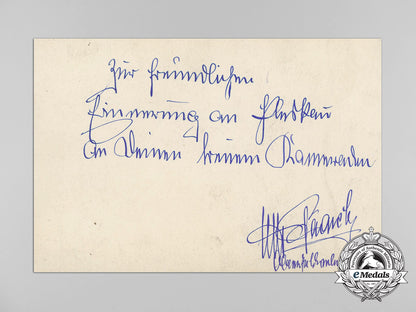 Zur freundlichen
Erinnerung an Pleskau
an Deinen treuen Kameraden
eMedals